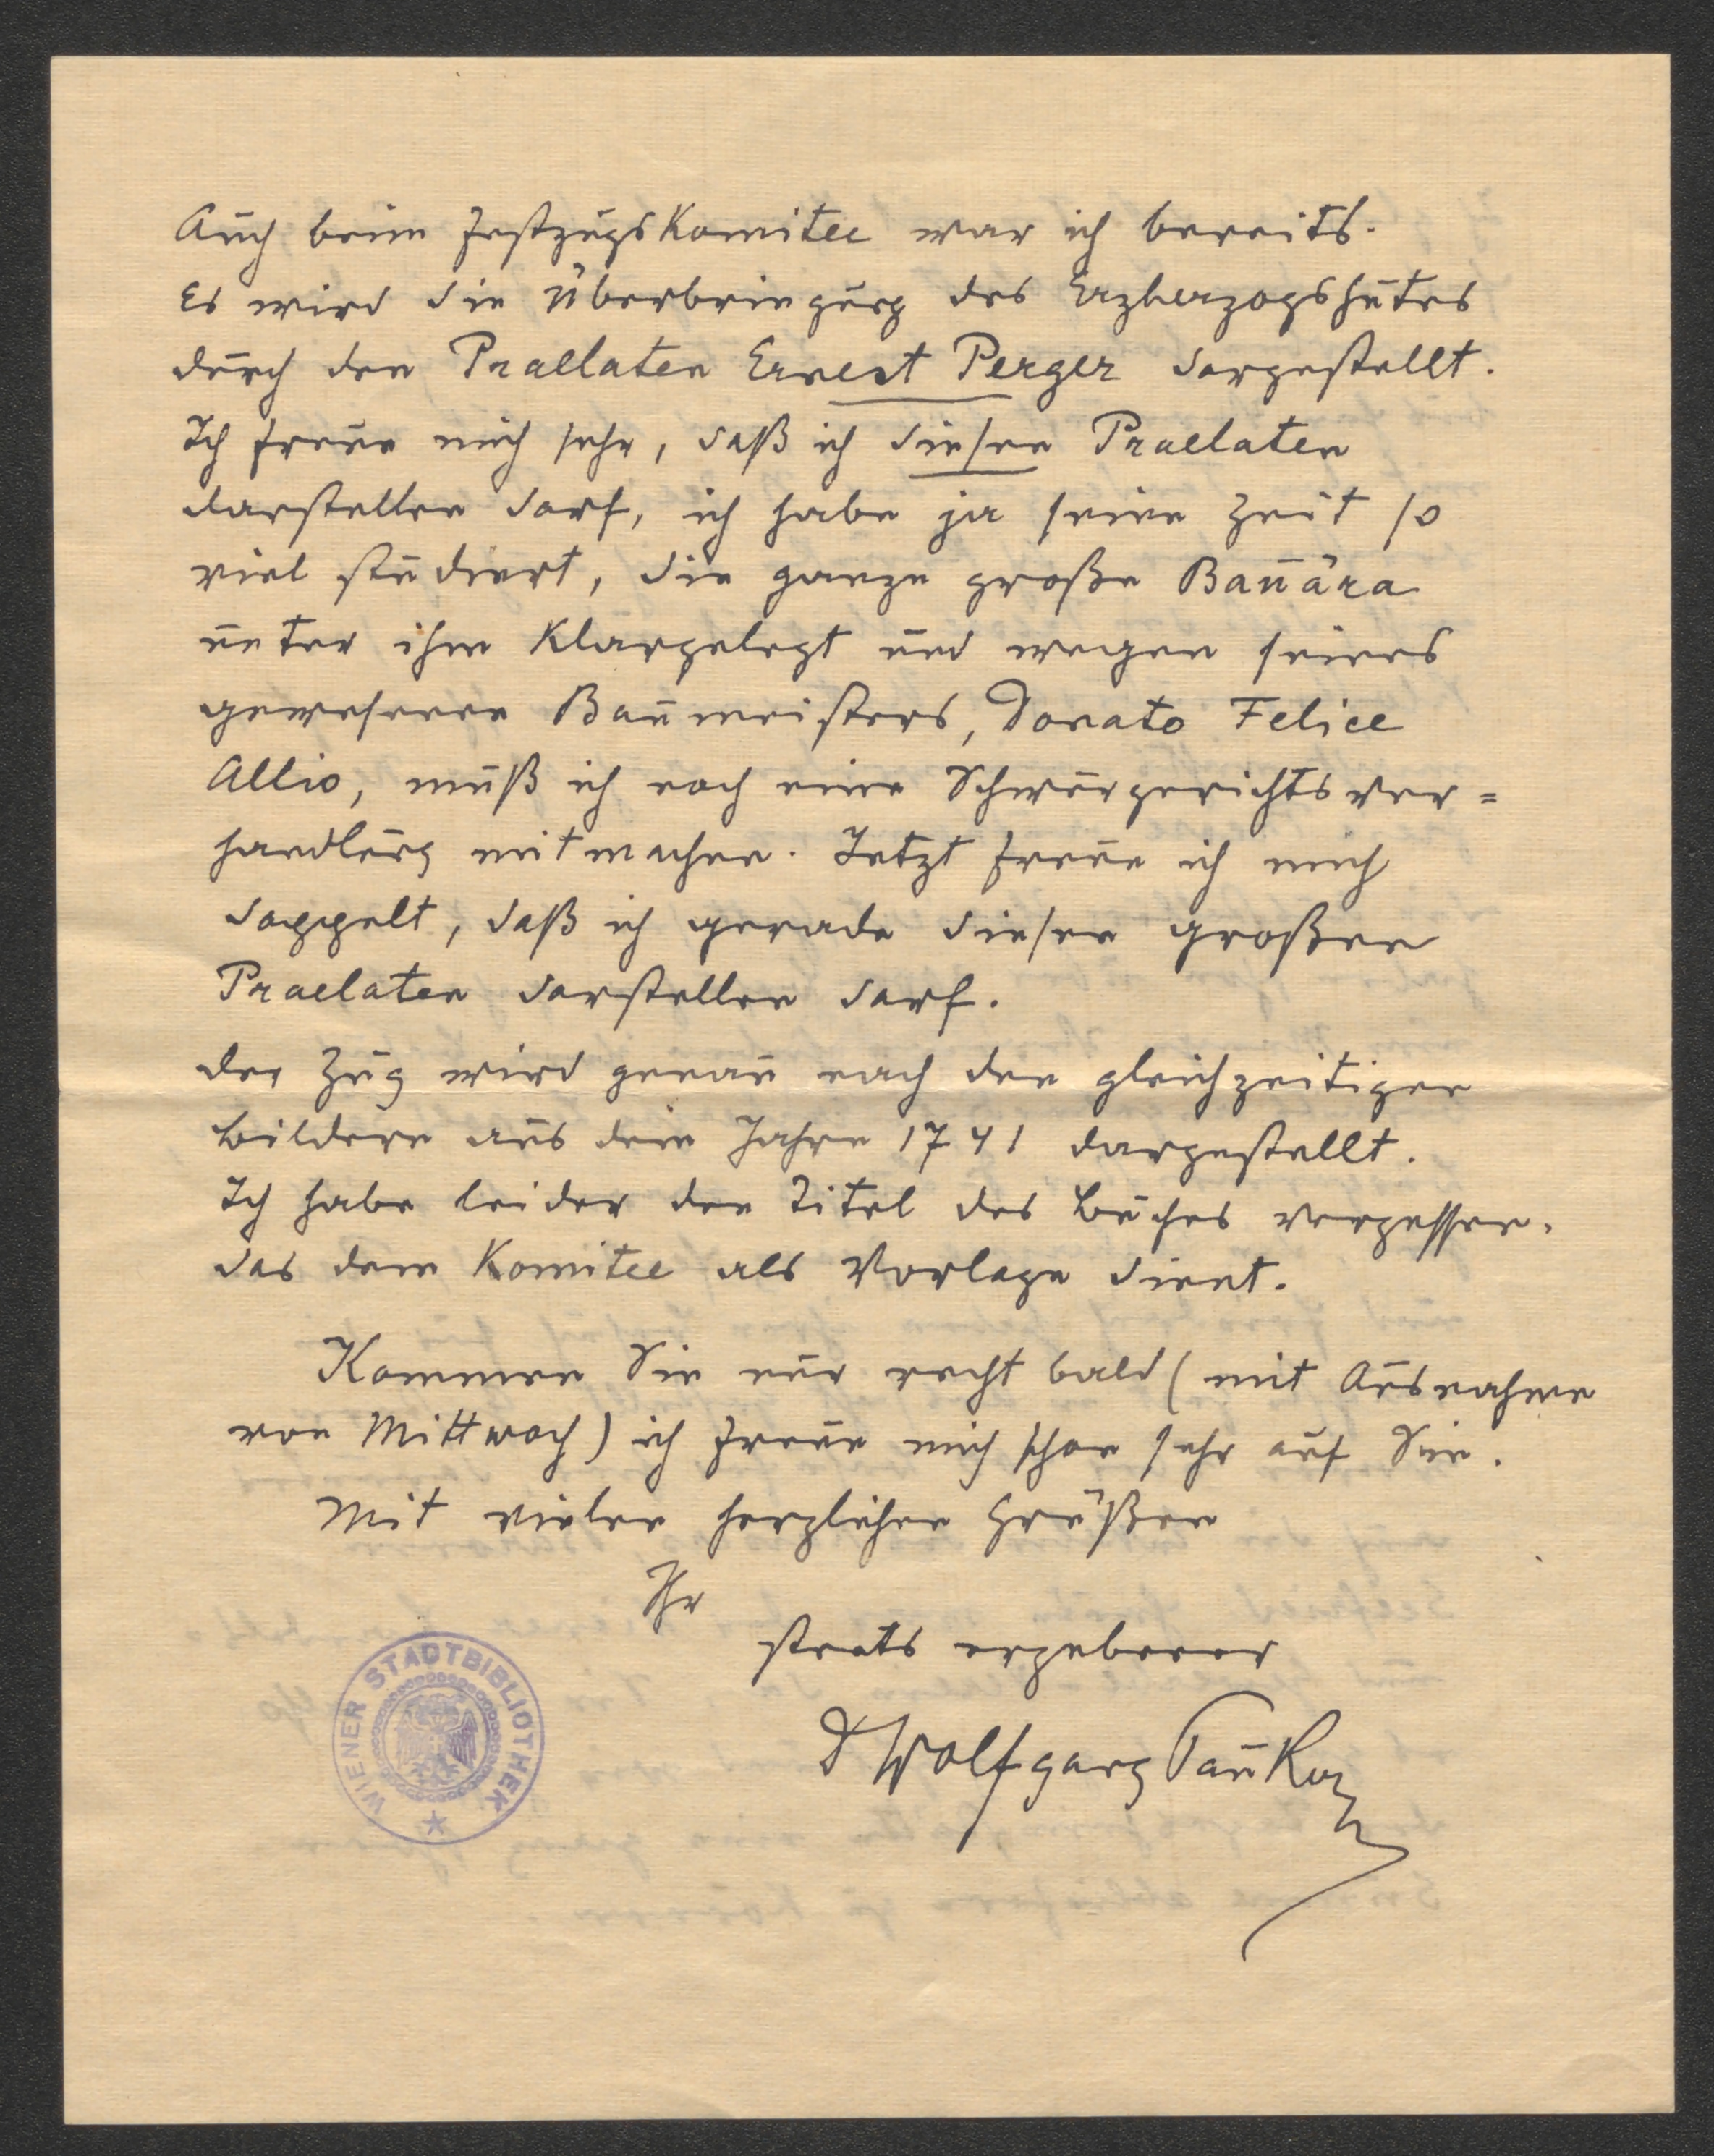 Auch beim Festzugskomitee war ich bereits.
Es wird die Überbringung des Erzherzogshutes
durch den Praelaten Ernest Perger dargestellt.
Ich freue mich sehr, daß ich diesen Praelaten
darstellen darf, ich habe ja seine Zeit so
viel studiert, die ganze große Bauära
unter ihm klargelegt und wegen seines
gewesenen Baumeisters, Donato Felice
Allio, muß ich noch eine Schwurgerichtsver=
handlung mitmachen. Jetzt freue ich mich
doppelt, daß ich gerade diesen großen
Praelaten darstellen darf.
Der Zug wird genau nach den gleichzeitigen
Bildern aus dem Jahre 1741 dargestellt.
Ich habe leider den Titel des Buches vergessen.
das dem Komitee als Vorlage dient.
Kommen Sie nur recht bald (mit Ausnahme
von Mittwoch) ich freue mich schon sehr auf Sie.
Mit vielen herzlichen Grüßen
Ihr
stets ergebener
D Wolfgang Pauker
WIENER STADTBIBLIOTHEK